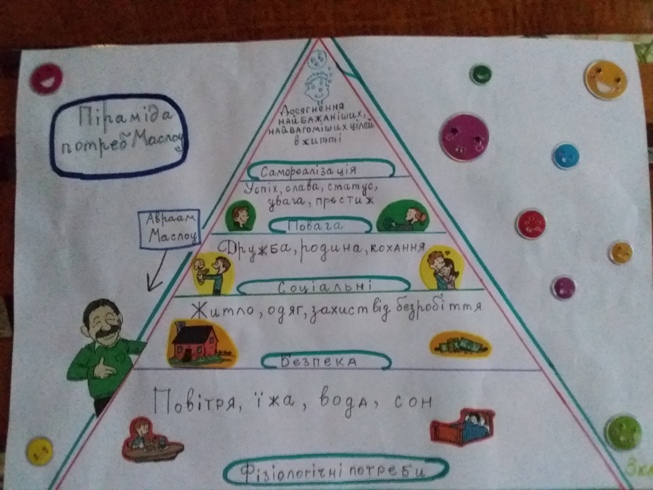 Піраміда
потреб Маслоу
Досягнення
найбажаніших,
найвагоміших цілей
в житті
Самореалізація
Успіх, слава, статус,
увага, престиж
Повага
Авраам
Маслоу
Дружба, родина, кохання
Соціальні
Житло, одяг, захист від безробіття
Безпека
Повітря, їжа, вода, сон
Фізіологічні потреби